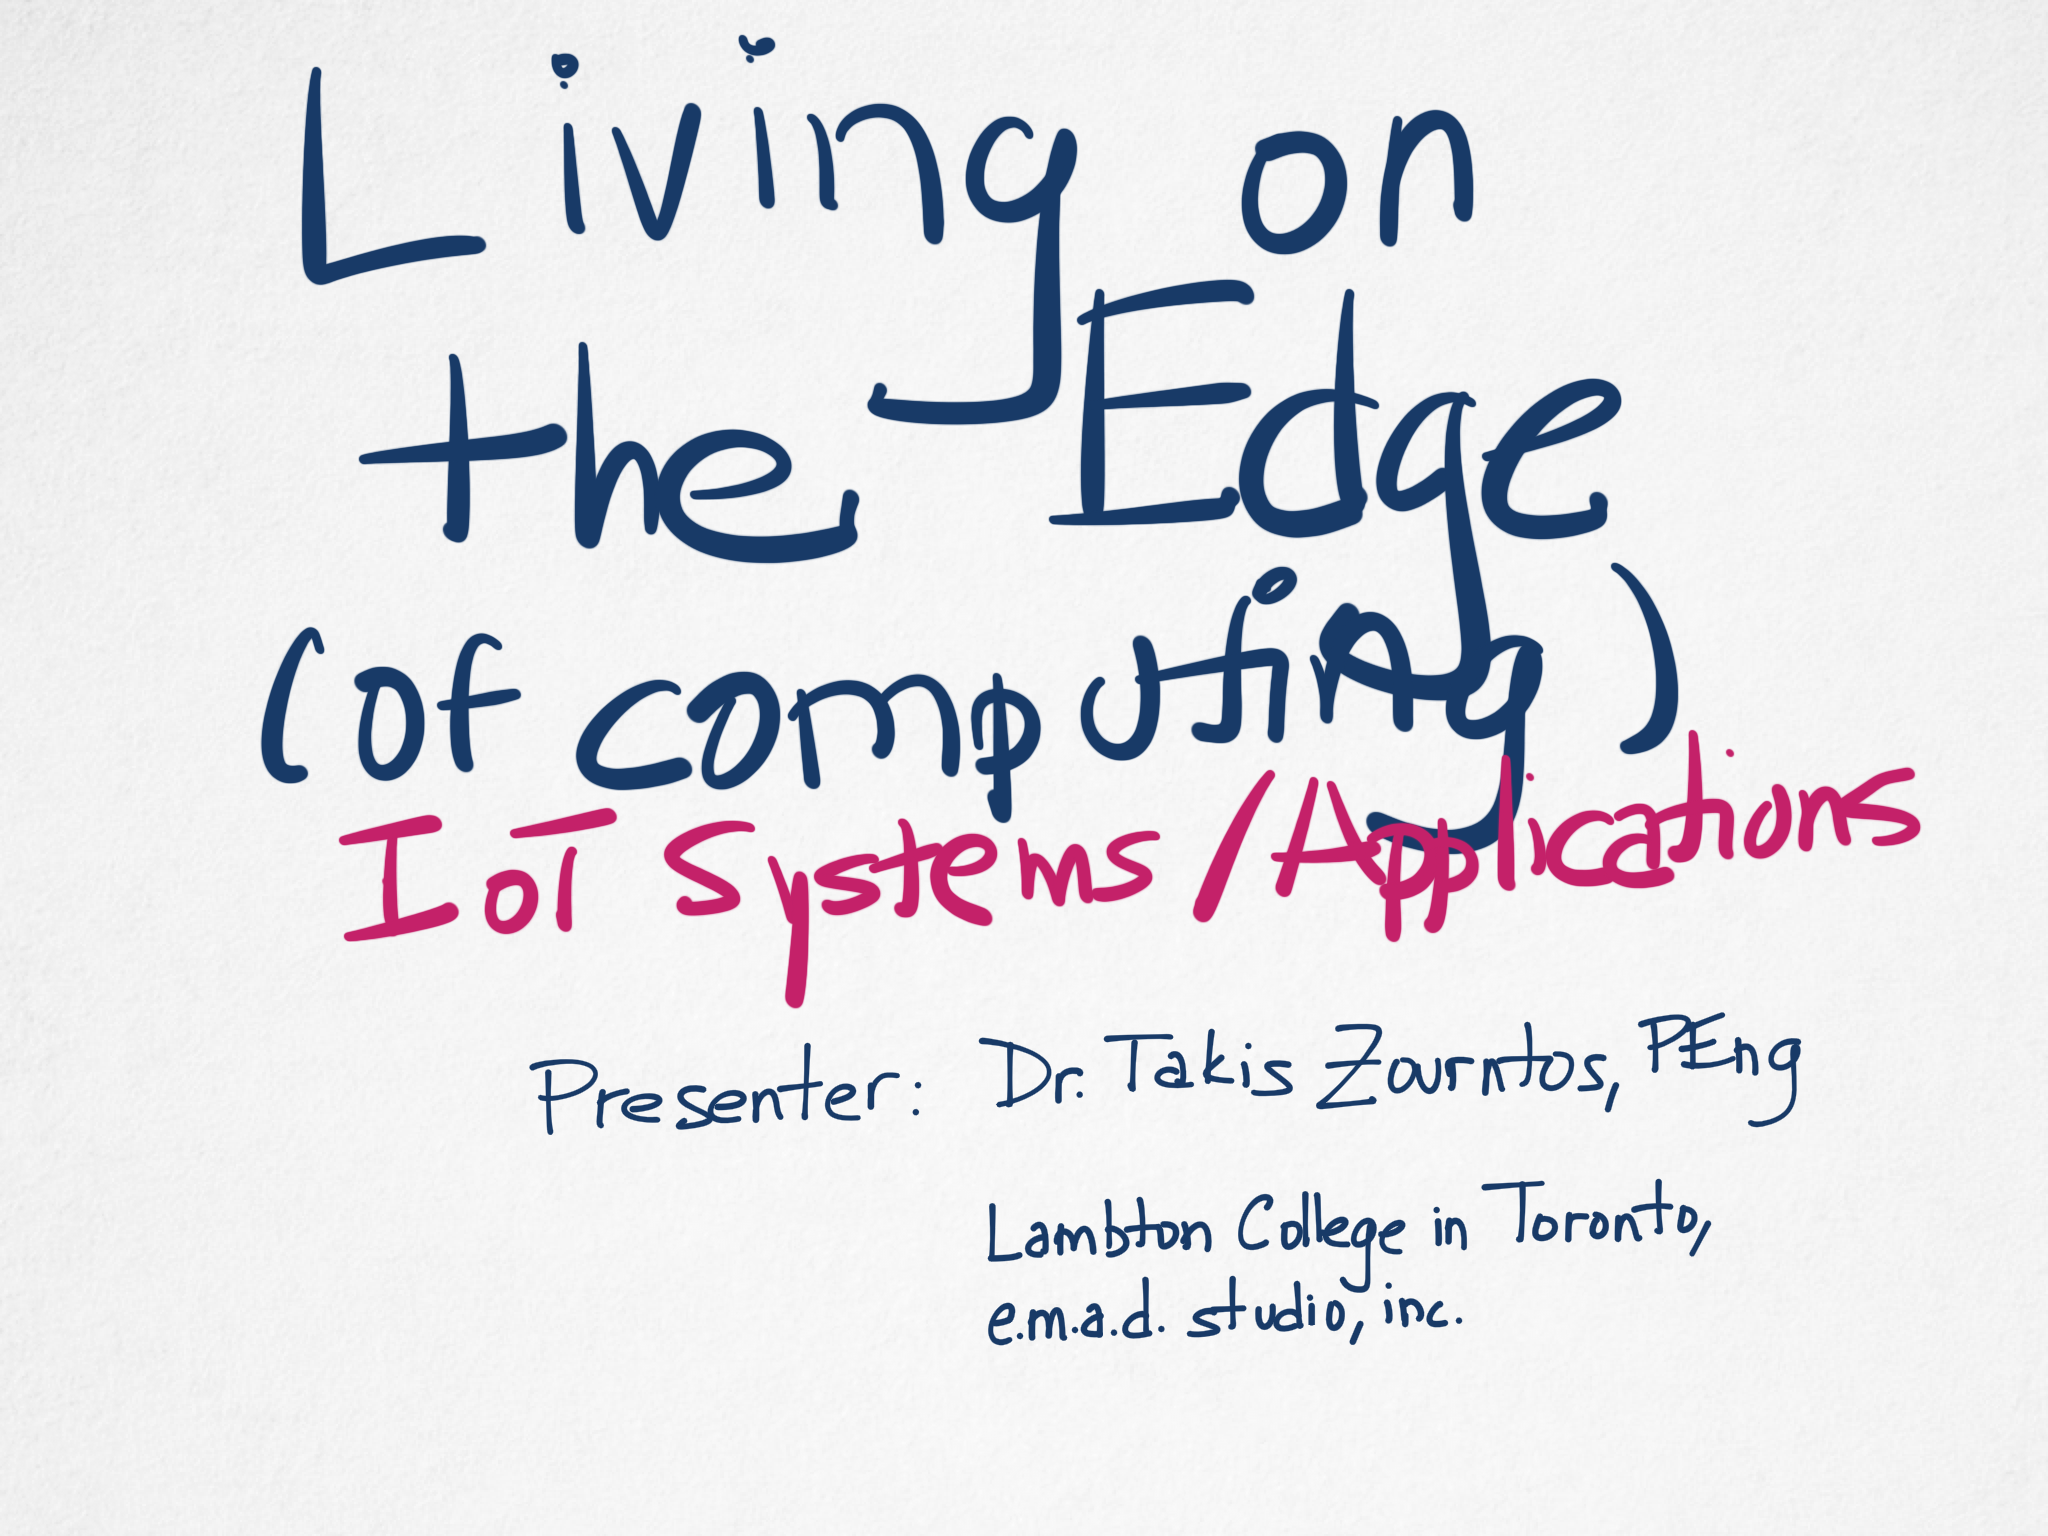 Living on
the Edge
(of computing)
IoT Systems/Applications
Presenter: Dr. Takis Zourntos, PEng
Lambton College in Toronto,
e.m.a.d. studio, inc.